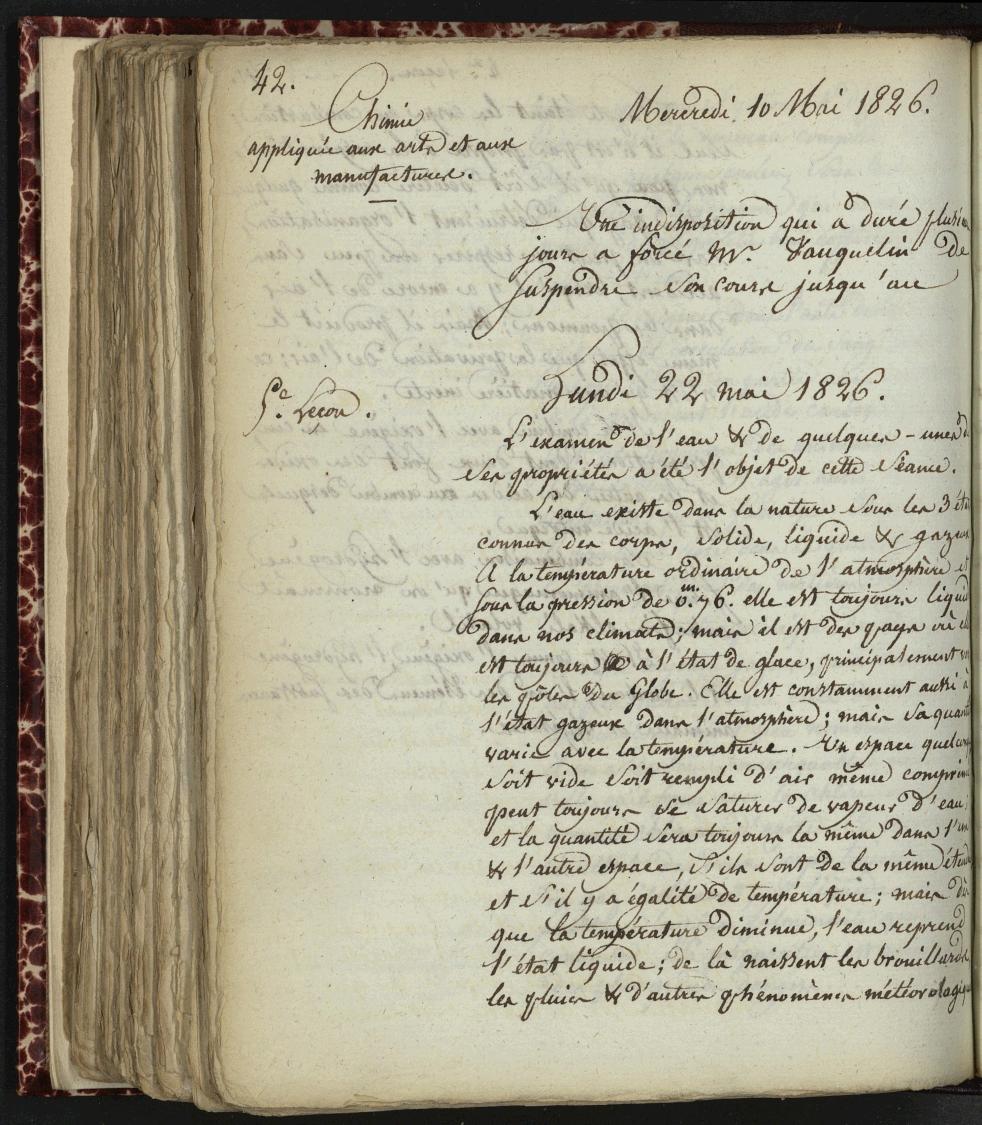 42.
Chimie
appliquée aux arts et aux
manufactures.
Mercredi 10 Mai 1826.
Une indisposition qui a duré plusieu
jours a forcé Mr. Vauquelin de
suspendre son cours jusqu'au
Lundi 22 mai 1826.
5e. Leçon.
L'examen de l'eau & de quelques-unes d
ses propriétés a été l'objet de cette séance.
L'eau existe dans la nature sous les 3 états
connus des corps, solide, liquide & gazeux
A la température ordinaire de l'atmosphère et
sous la pression de 0.m.76. elle est toujours liquid
dans nos climats; mais il est des pays où el
est toujours à l'état de glace, principalement
les pôles du Globe. Elle est constamment aussi à
l'état gazeux dans l'atmosphère; mais sa quanti
varie avec la température. Un espace quelconq
soit vide soit rempli d'air même comprimé
peut toujours se saturer de vapeur d'eau;
et la quantité sera toujours la même dans l'un
& l'autre espace, s'ils sont de la même étendu
et s'il y a égalité de température; mais dès
que la température diminue, l'eau reprend
l'état liquide; de là naissent les brouillards,
les pluies & d'autres phénomènes météorologiq